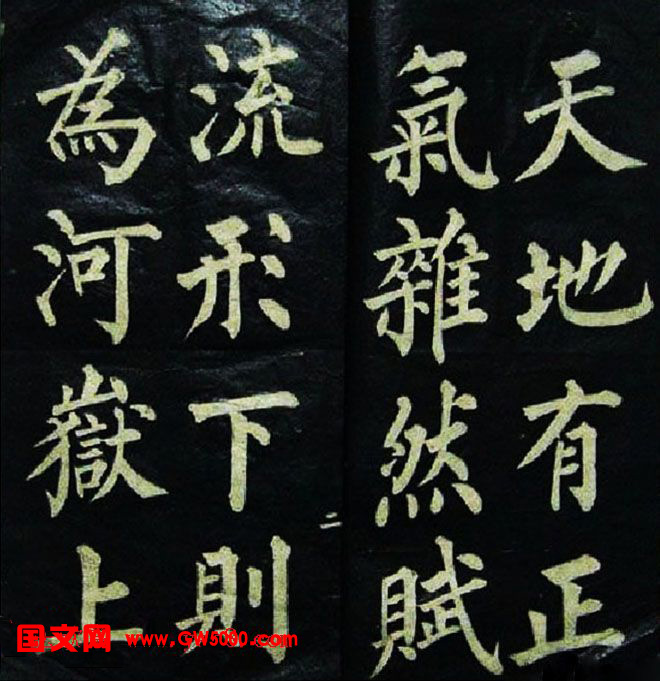 天地有正
氣雜然賦
流形下則
為河嶽上
二
国文网 www.GW5000.com